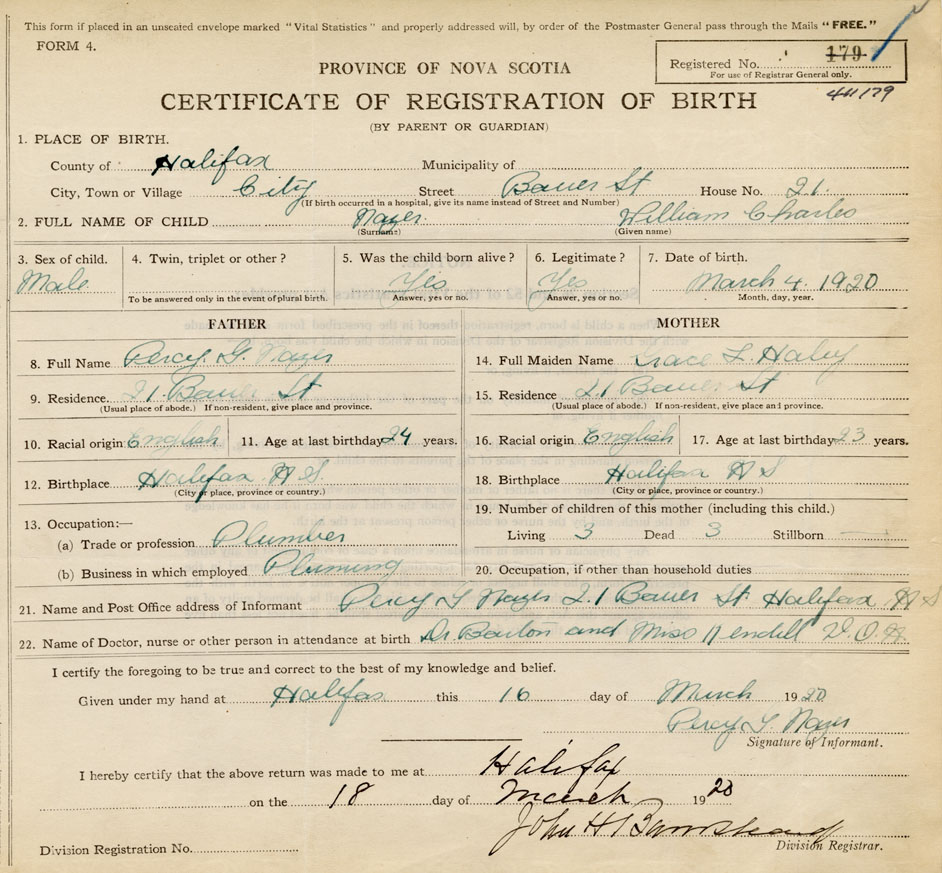 This form if placed in an unseated envelope marked "Vital Statistics" and properly addressed will, by order of the Postmaster General pass through the Mails "FREE."
FORM 4.
Registered No. 179
For use of Registrar General only.
PROVINCE OF NOVA SCOTIA
CERTIFICATE OF REGISTRATION OF BIRTH
(BY PARENT OR GUARDIAN)
1. PLACE OF BIRTH.
County of Halifax Municipality of
City, Town or Village City Street Bauer St House No. 21.
(If birth occurred in a hospital, give its name instead of Street and Number)
2. FULL NAME OF CHILD William Charles
(Surname) (Given name)
3. Sex of child. 4. Twin, triplet or other? 5. Was the child born alive? 6. Legitimate? 7. Date of birth.
Male Yes Yes March 4. 1920
To be answered only in the event of plural birth. Answer, yes or no. Answer, yes or no. Month, day, year.
FATHER
8. Full Name Percy
9. Residence. 21. Bauer St
(Usual place of abode.) If non-resident, give place and province.
10. Racial origin English 11. Age at last birthday 24 years.
12. Birthplace Halifax N S.
(City or place, province or country.)
13. Occupation:—
(a) Trade or profession Plumber
(b) Business in which employed Pluming
MOTHER
14. Full Maiden Name Grace L. Haley
15. Residence 21 Bauer St
(Usual place of abode.) If non-resident, give place and province.
16. Racial origin English 17. Age at last birthday 23 years.
18. Birthplace Halifax N S
(City or place, province or country.)
19. Number of children of this mother (including this child.)
Living 3 Dead 3 Stillborn
20. Occupation, if other than household duties
21. Name and Post Office address of Informant Percy 21 Bauer St. Halifax N S
22. Name of Doctor, nurse or other person in attendance at birth Dr. and Miss V. O. N.
I certify the foregoing to be true and correct to the best of my knowledge and belief.
Given under my hand at Halifax this 16 day of March 1920
Percy
Signature of Informant.
I hereby certify that the above return was made to me at Halifax
on the 18 day of March 1920
John H
Division Registration No. Division Registrar.